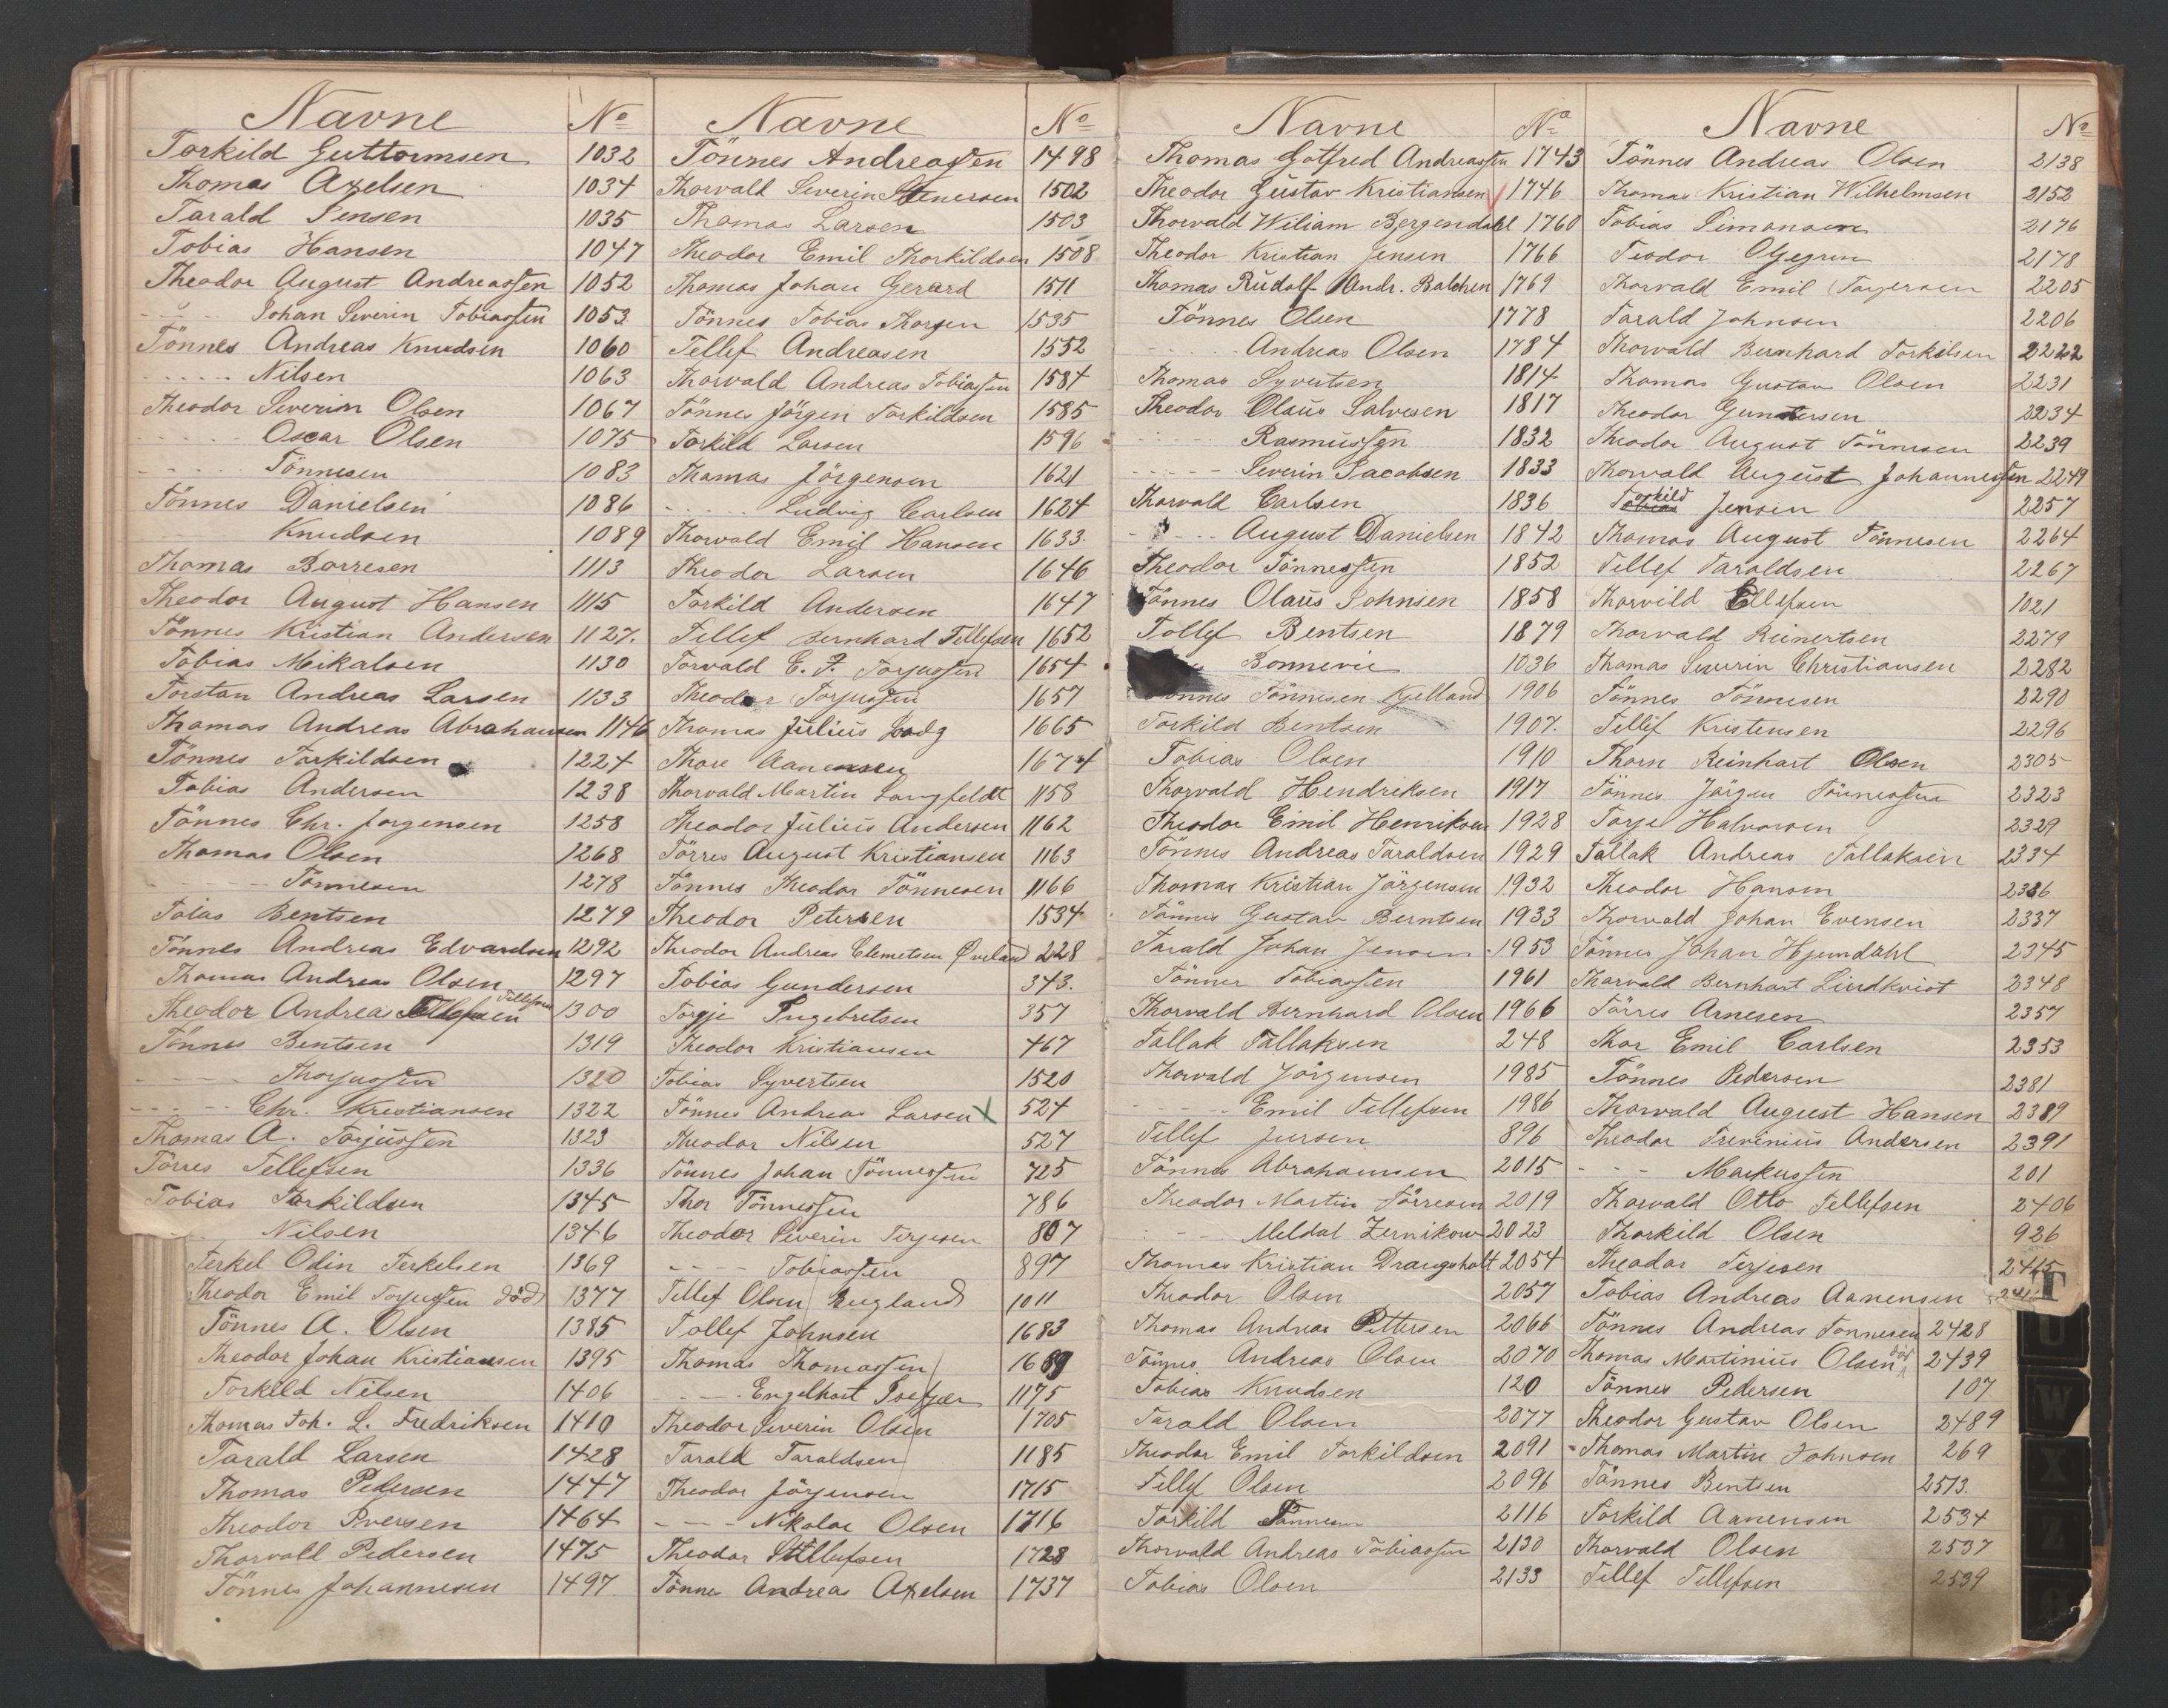 Navne No
Torkild Guttormsen 1032
Thomas Axelsen 1034
Tarald Jensen 1035
Tobias Hansen 1047
Theodor August Andreassen 1052
- - - Johan Severin Tobiassen 1053
Tönnes Andreas Knudsen 1060
- - - - - Nilsen 1063
Theodor Severin Olsen 1067
- - - - - Oscar Olsen 1075
- - - - - Tönnesen 1083
Tönnes Danielsen 1086
Knudsen 1089
Thomas Borresen 1113
Theodor August Hansen 1115
Tönnes Kristian Andersen 1127.
Tobias Mikalsen 1130
Torstan Andreas Larsen 1133
Thomas Andreas Abrahamsen 1146
Tönnes Torkildsen 1224
Tobias Andersen 1238
Tönnes Chr. Jorgensen 1258
Thomas Olsen 1268
- - - - - Tönnesen 1278
Tobias Bentsen 1279
Tönnes Andreas Edvardsen 1292
Thomas Andreas Olsen 1297
Theodor Andreas Tellefsen 1300
Tönnes Bentsen 1319
- - - - Thorjussen 1320
- - - - - Chr. Kristiansen 1322
Thomas A. Torjussen 1323
Törres Tellefsen 1336
Tobias Torkildsen 1345
Nilsen 1346
Terkel Odin Terkelsen 1369
Theodor Emil Torjussen död 1377
Tönnes A. Olsen 1385
Theodor Johan Kristiansen 1395
Torkild Nilsen 1406
Thomas Joh. L. Fredriksen 1410
Tarald Larsen 1428
Thomas Pedersen 1447
Theodor Iversen 1464
Thorvald Pedersen 1475
Tönnes Johannesen 1497.
Navne No
Tönnes Andreassen 1498
Thorvald Severin Stenersen 1502
Thomas Larsen 1503
Theodor Emil Thorkildsen 1508
Thomas Johan Gerard 1511
Tönnes Tobias Thorsen 1535
Tellef Andreasen 1552
Thorvald Andreas Tobiassen 1584
Tönnes Jörgen Torkildsen 1585
Torkild Larsen 1596
Thomas Jörgensen 1621
- - - - - Ludvig Carlsen 1624
Thorvald Emil Hansen 1633.
Theodor Larsen 1646
Torkild Andersen 1647
Tellef Bernhard Tellefsen 1652
Torvald E. F. Torjussen 1654
Theodor Torjussen 1657
Thomas Julius Lodg 1665
Thore Aanensen 1674
Thorvald Martin Langfeldt 1158
Theodor Julius Andersen 1162
Törres August Kristiansen 1163
Tönnes Theodor Tönnesen 1166
Theodor Petersen 1534
Theodor Andreas Clemetsen Øveland 228
Tobias Gundersen 343.
Torgje Ingebretsen 357
Theodor Kristiansen 467
Tobias Syvertsen 1520
Tönnes Andreas Larsen x 524
Theodor Nilsen 527
Tönnes Johan Tönnessen 725
Thor Tönnessen 786
Theodor Severin Terjesen 807
- - - - Tobiassen 897
Tellef Olsen Rugland 1011
Tollef Johnsen 1683
Thomas Thomassen 1689
- - - Engelhart 1175
Theodor Severin Olsen 1705
Tarald Taraldsen 1185
Theodor Jörgensen 1715
- - - Nikolai Olsen 1716
Theodor Tellefsen 1728
Tönnes Andreas Axelsen 1737
Navne No
Thomas Gotfred Andreassen 1743
Theodor Gustav Kristiansen 1746
Thorvald Wiliam Bergendahl 1760
Theodor Kristian Jensen 1766
Thomas Rudolf Andr. Balchen 1769
Tönnes Olsen 1778
- - - - - Andreas Olsen 1784
Thomas Syvertsen 1814
Theodor Olaus Salvesen 1817
- - - - Rasmussen 1832
- - - - - Severin Jacobsen 1833
Thorvald Carlsen 1836
- - - - August Danielsen 1842
Theodor Tönnessen 1852
Tönnes Olaus Johnsen 1858
Tollef Bentsen 1879
Bonnevie 1036
Tönnes Tönnesen Kjelland 1906
Torkild Bentsen 1907.
Tobias Olsen 1910
Thorvald Hendriksen 1917
Theodor Emil Henriksen 1928
Tönnes Andreas Taraldsen 1929
Thomas Kristian Jörgensen 1932
Tönnes Gustav Berntsen 1933
Tarald Johan Jensen 1953
Tönnes Tobiassen 1961
Thorvald Bernhard Olsen 1966
Tallak Tallaksen 248
Thorvald Jörgensen 1985
- - - - - Emil Tellefsen 1986
Tellef Jensen 896
Tönnes Abrahamsen 2015
Theodor Martin Törresen 2019
- - - Meldal Zernikow 2023
Thomas Kristian Drangsholt 2054
Theodor Olsen 2057
Thomas Andreas Pettersen 2066
Tönnes Andreas Olsen 2070
Tobias Knudsen 120
Tarald Olsen 2077
Theodor Emil Torkildsen 2091
Tellef Olsen 2096
Torkild Tönnesen 2116
Thorvald Andreas Tobiassen 2130
Tobias Olsen 2133
Navne No
Tönnes Andreas Olsen 2138
Thomas Kristian Wilhelmsen 2152
Tobias Simonsen 2176
Teodor 2178
Thorvald Emil Torgersen 2205
Tarald Johnsen 2206
Thorvald Bernhard Torkilsen 2222
Thomas Gustav Olsen 2231
Theodor Gundersen 2234
Theodor August Tönnesen 2239
Thorvald August Johannessen 2249
Torkild Jensen 2257
Thomas August Tönnesen 2264
Tellef Taraldsen 2267
Thorvild Ellefsen 1021
Thorvald Reinertsen 2279
Thomas Severin Christiansen 2282
Tönnes Tönnesen 2290
Tellef Kristensen 2296
Thorn Reinhart Olsen 2305
Tönnes Jörgen Tönnessen 2323
Torje Halvorsen 2329
Tallak Andreas Tallaksen 2334
Theodor Hansen 2336
Thorvald Johan Evensen 2337
Tönnes Johan Hjemdahl 2345
Thorvald Bernhart Lindkvist 2348
Törres Arnesen 2357
Thor Emil Carlsen 2353
Tönnes Pedersen 2381
Thorvald August Hansen 2389
Theodor Trevenius Andersen 2391
- - - Markussen 201
Thorvald Otto Tellefsen 2406
Thorkild Olsen 926
Theodor Terjesen 2415
Tobias Andreas Aanensen
Tönnes Andreas Tonnesen 2428
Thomas Martinius Olsen död 2439
Tönnes Pedersen 107
Theodor Gustav Olsen 2489
Thomas Martin Johnsen 269
Tönnes Bentsen 2513.
Torkild Aanensen 2534
Thorvald Olsen 2537
Tellef Tellefsen 2539
T
U
W
X
Z